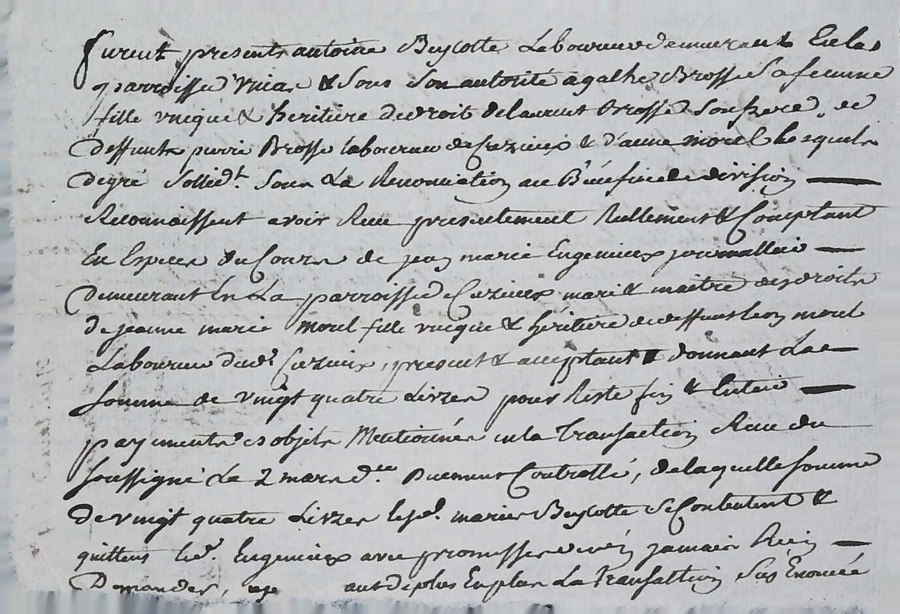 furent presents antoine Beysotte Laboureur demeurant En la
parroisse d' & Sous Son autorité agathe Brosse Sa femme
fille unique & heritiere de droit de laurent Brosse Son frere & de
deffunts pierre Brosse laboureur de Cezieux & d'anne morel Lesquels
degré Sollidt. Sous La Renonciation au Bénéfice de division
Reconnaissent avoir Reçu presentement Reellement & Comptant
En Espèces du Cours de jean marie Eugenieux journallier
demeurant En La parroisse de Cezieux mari & maitre des droits
de jeanne marie Morel fille unique & heritiere de deffunt leon morel
Laboureur dudt. Cezieux, present & acceptant & donnant La
Somme de vingt quatre Livres pour Reste fin & Entier
payement des objets Mentionnés en la Transaction Reçue du
Soussigné Le 2 mars der. Duement Controllé, de laquelle Somme
de vingt quatre Livres lesd. mariés Beysotte Se Contentent &
quittent led. Eugenieux avec promesse de n'en jamais Rien
Demander, au de plus En plus La Transaction Sus Enoncée